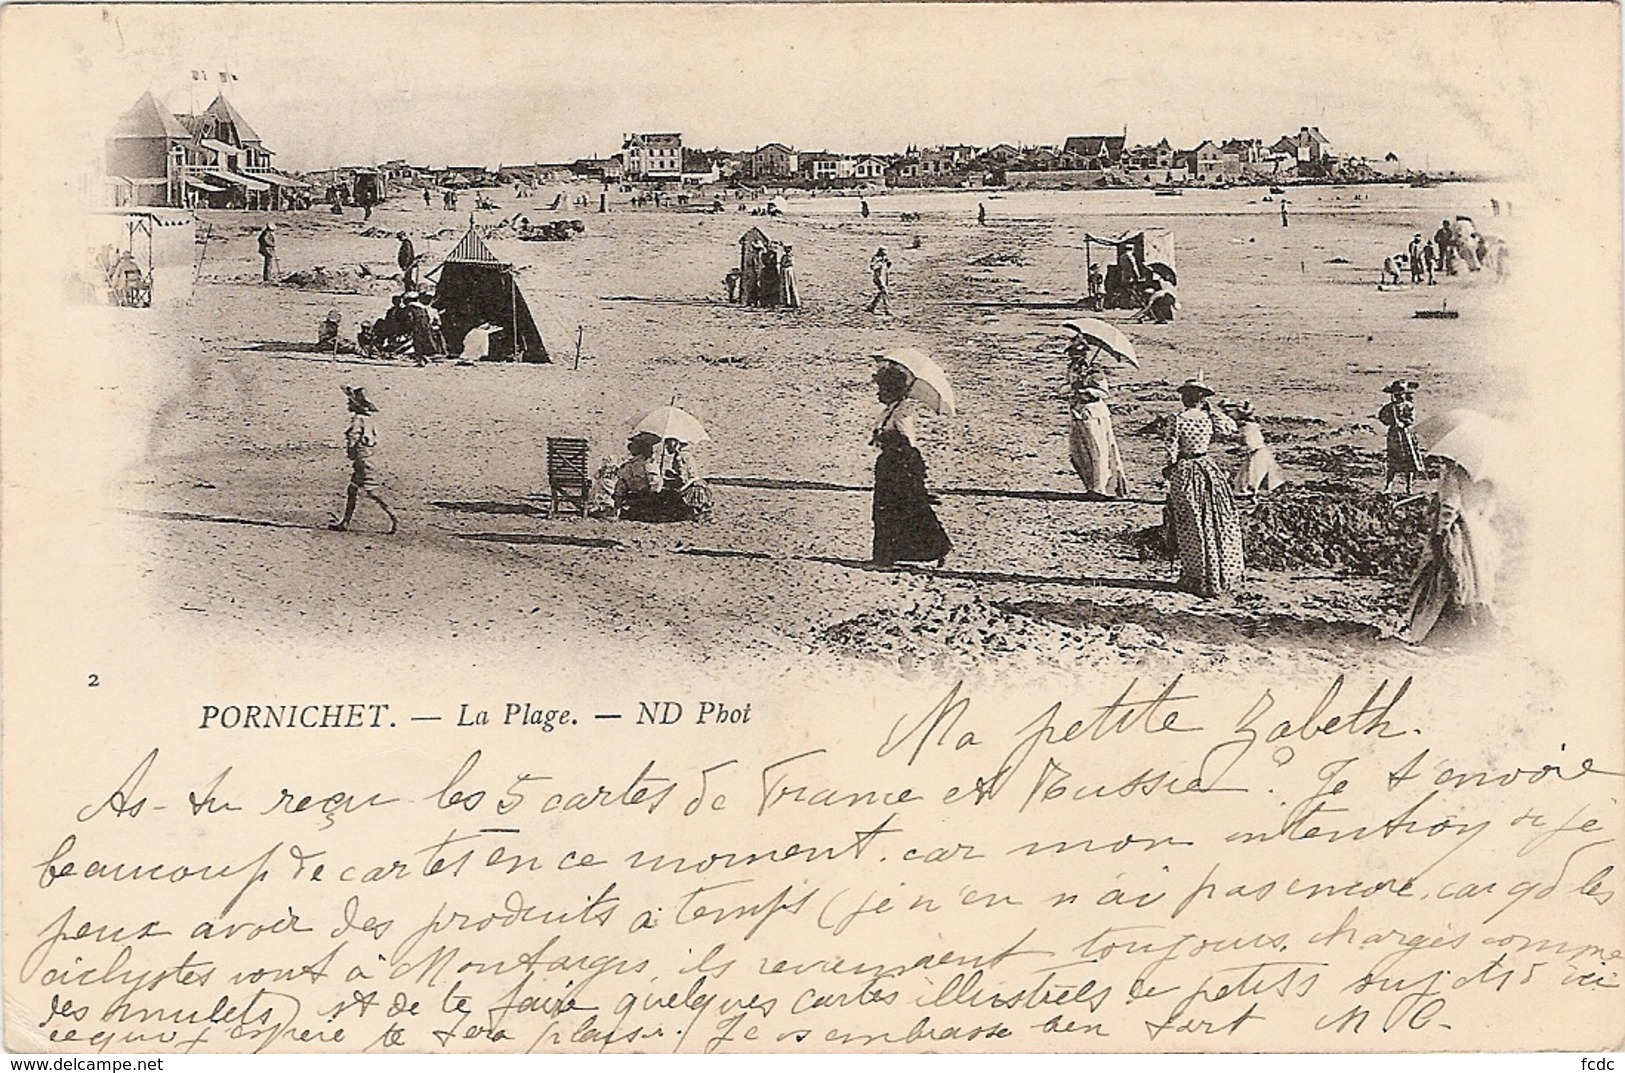 2
PORNICHET. — La Plage. — ND Phot
Ma petite Zabeth.
As-tu reçu les 5 cartes de France et Russie? Je t'envoie
beaucoup de cartes en ce moment. car mon intention si je
peux avoir des produits à temps (je n'en n'ai pas encore, car qd les
ciclystes vont à Montargis, ils reviennent toujours chargés comme
des mulets) est de te faire quelques cartes illustrées de petits sujets d'ici
ce qui j'espère te fera plaisir. Je vs embrasse bien fort M C.
delcampe.net
fcdc